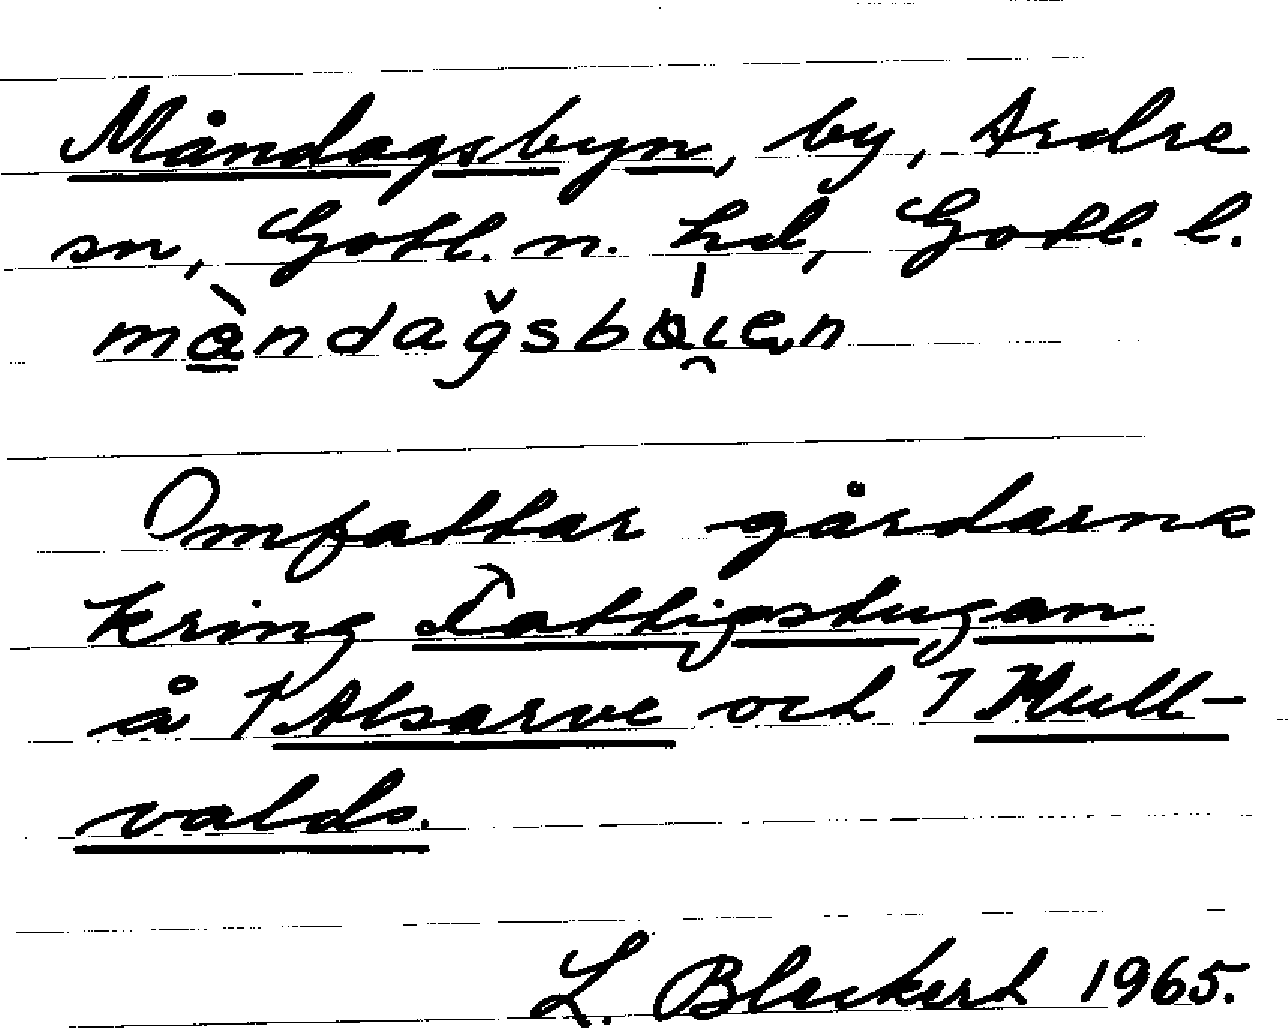 Måndagsbyn, by, Ardre
sn, Gotl. n. hd, Gotl. l.
måndaǧsbɷi̯en
Omfattar gårdarna
kring Fattigstugan
å 1 Alsarve och 1 Hull-
valds.
L. Bleckert 1965.